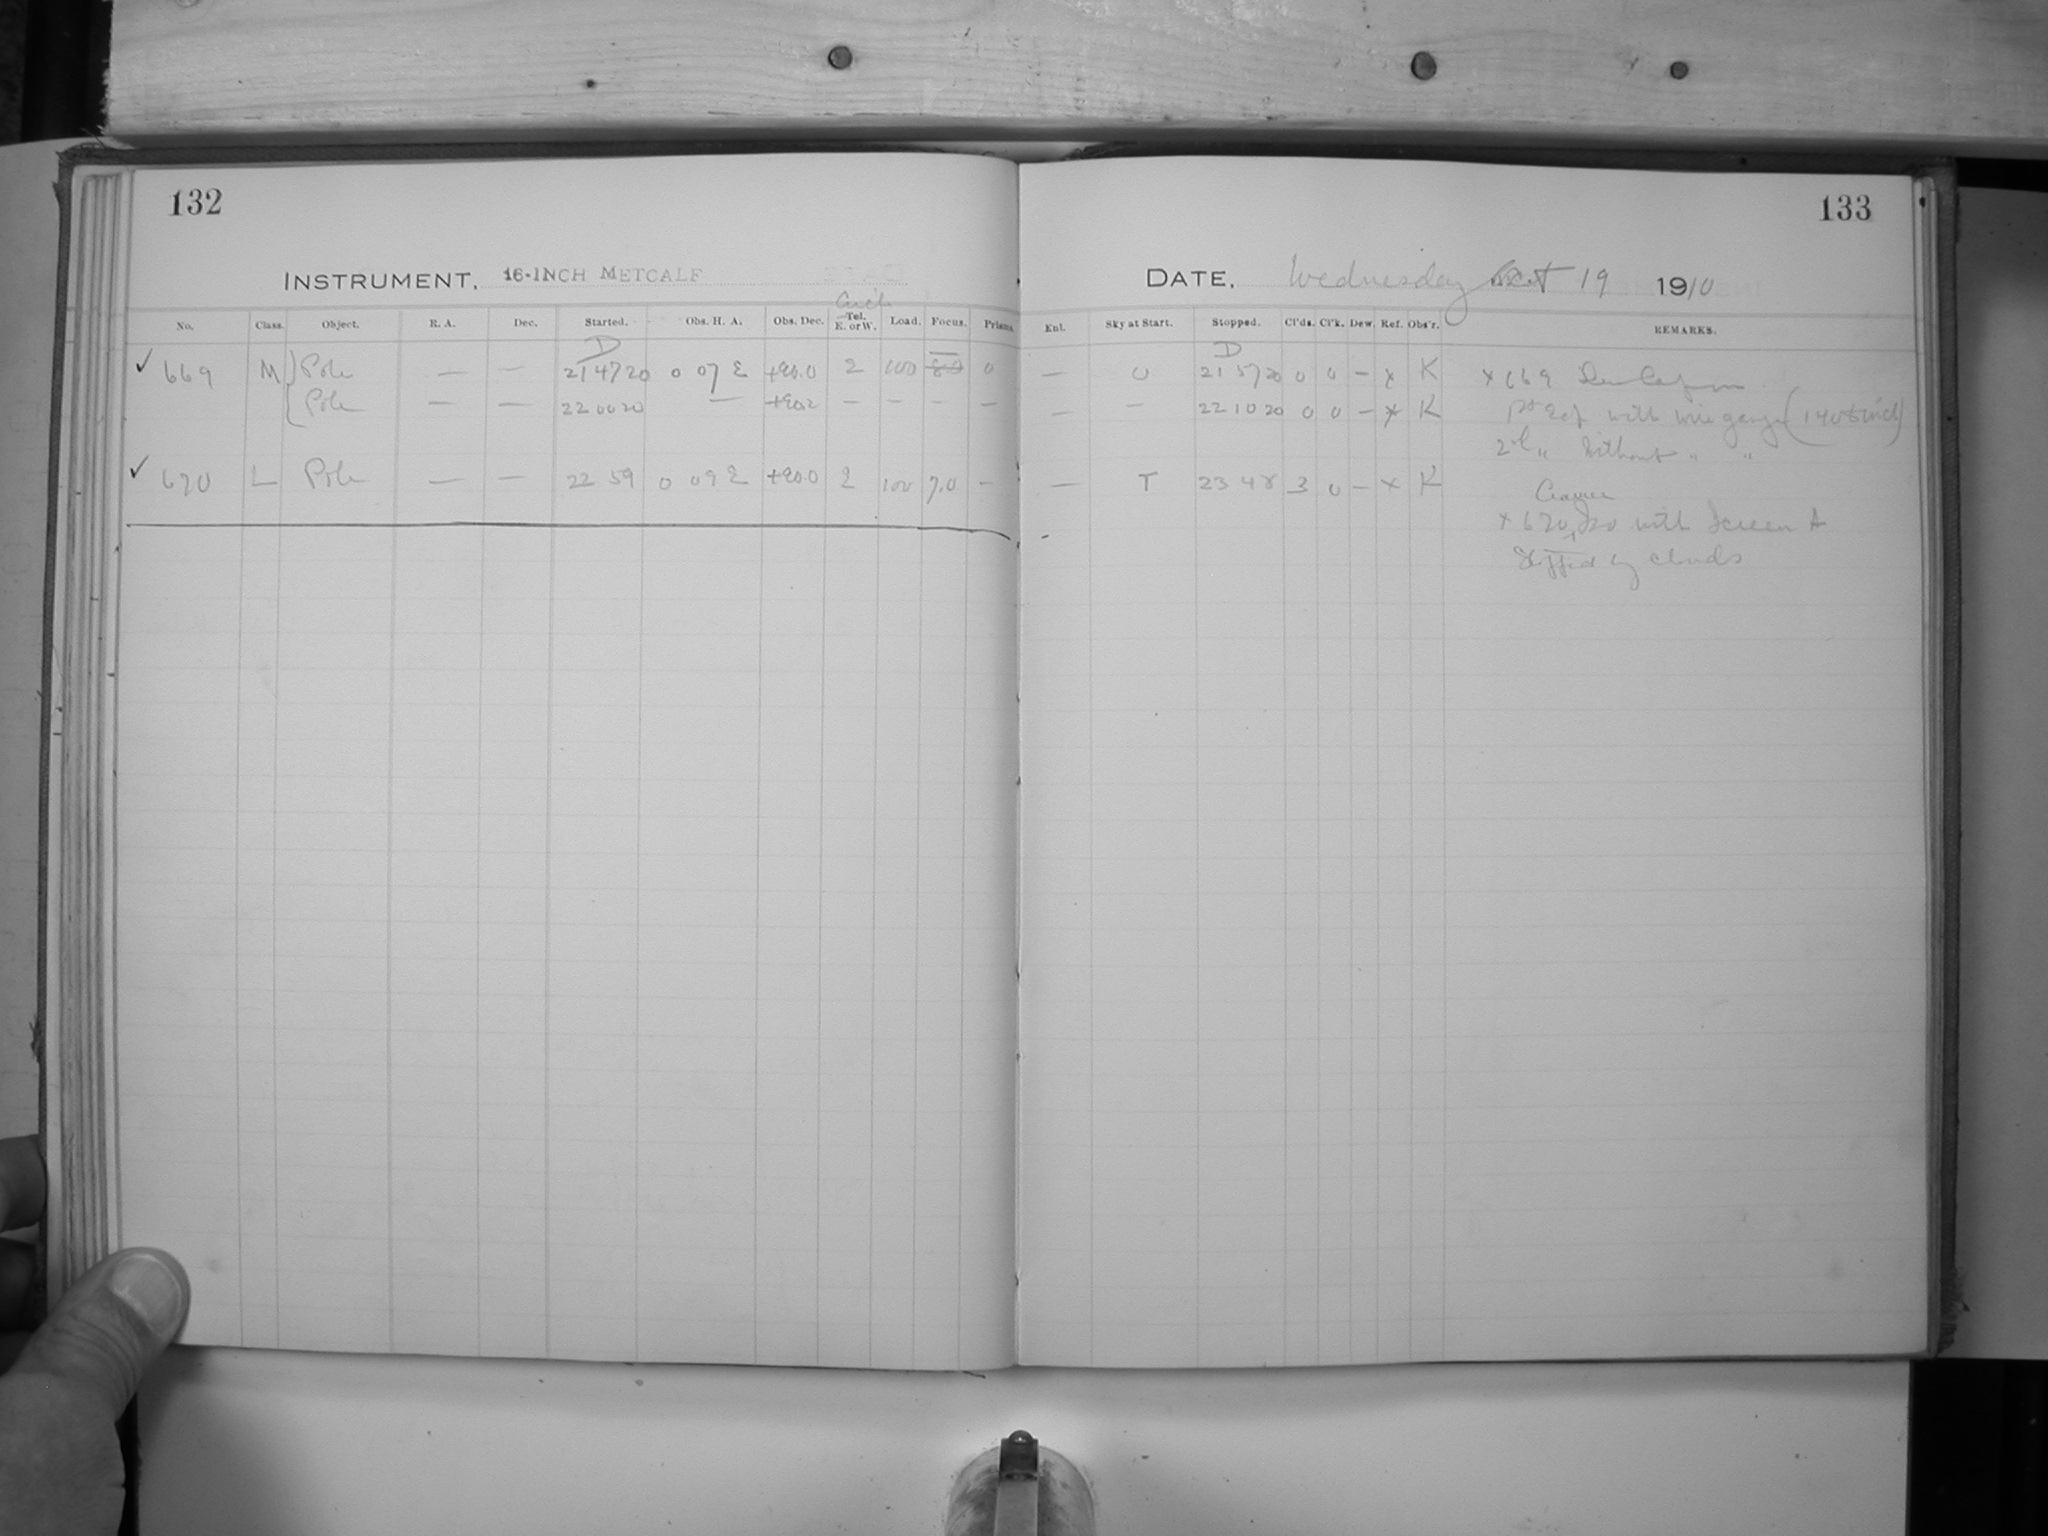 132
133
INSTRUMENT, 16-INCH METCALF
DATE, Wednesday Oct 19 1910
No. Class. Object. R. A. Dec. Started. Obs. H. A. Obs. Dec. Tel. E. or W. Load. Focus. Prisms. Enl. Sky at Start. Stopped. Cl'ds. Cl'k. Dew. Ref. Obs'r. REMARKS.
✓ 669 M Pole — — D 21 47 20 0 07 E +90.0 2 100 8.0 0 — 0 D 21 57 20 0 0 — x K x 669
Pole — — 22 00 20 — +90.2 — — — — — — 22 10 20 0 0 — x K 1st Exp with wire gauze
2d " Without " "
✓ 670 L Pole — — 22 59 0 09 E +90.0 2 100 7.0 — — T 23 48 3 0 — x K
Cramer
x 670 Iso with Screen A
Stopped by clouds